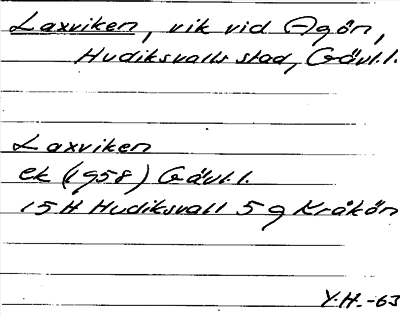 Laxviken, vik vid Agön,
Hudiksvalls stad, Gävl.l.
Laxviken
ek (1958) Gävl.l.
15H Hudiksvall 5g Kråkön
Y.H.-63